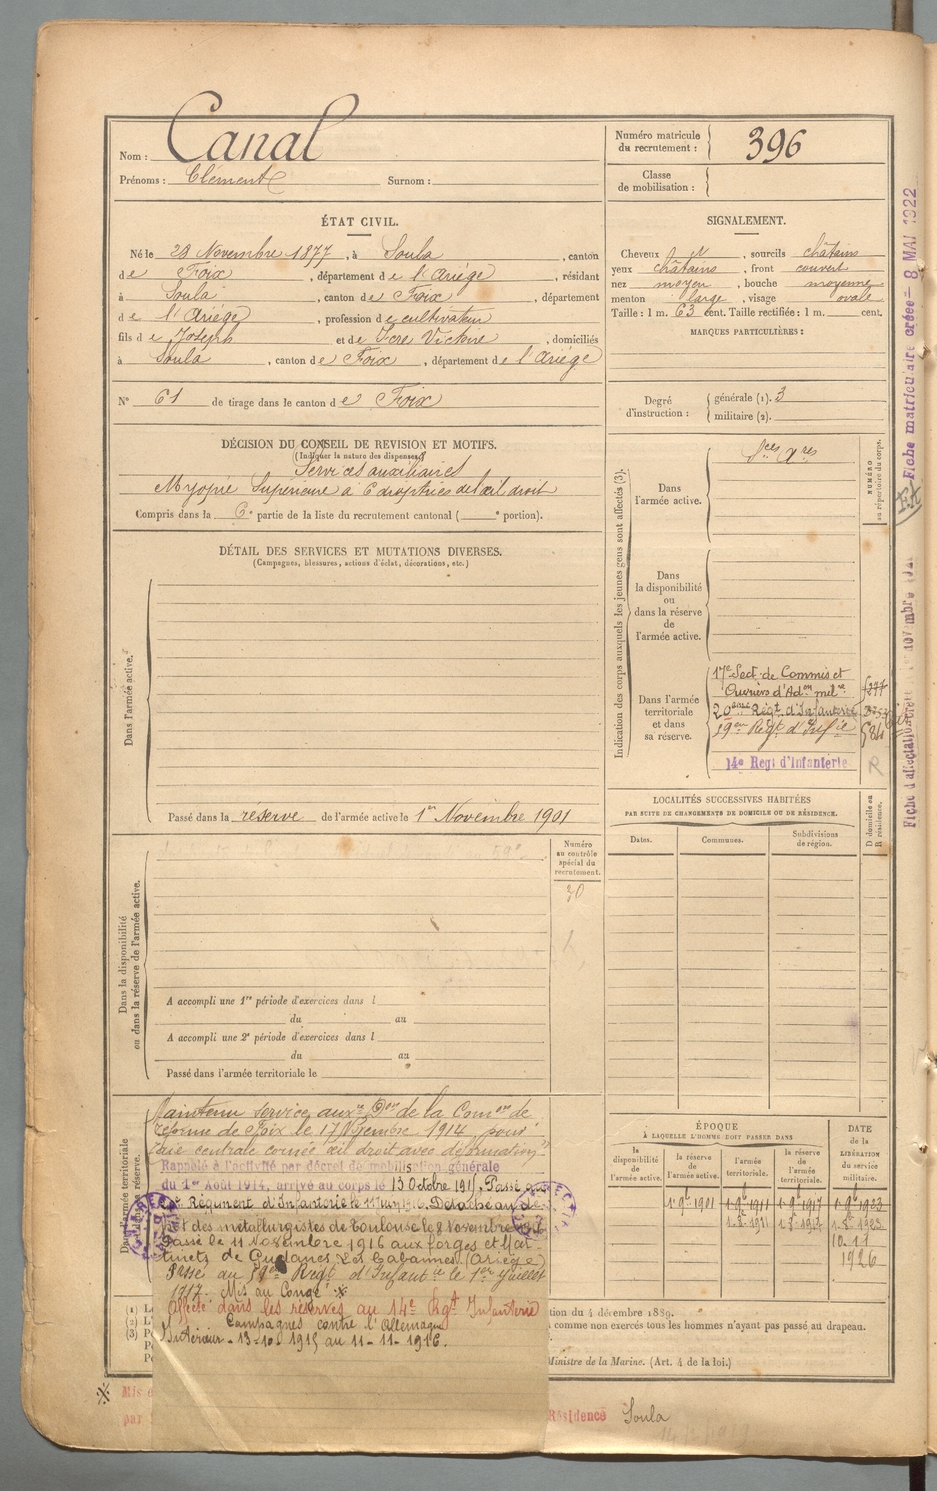 Nom : Canal
Prénoms : Clément Surnom :
Numéro matricule du recrutement : 396
Classe de mobilisation :
ÉTAT CIVIL.
Né le 23 Novembre 1877, à Soula, canton
de Foix, département de l'Ariège, résidant
à Soula, canton de Foix, département
de l'Ariège, profession de cultivateur
fils de Joseph et de Icre Victoire, domiciliés
à Soula, canton de Foix, département de l'Ariège
N° 61 de tirage dans le canton de Foix
SIGNALEMENT.
Cheveux, sourcils châtains
yeux châtains, front couvert
nez moyen, bouche moyenne
menton large, visage ovale
Taille : 1 m. 63 cent. Taille rectifiée : 1 m. cent.
MARQUES PARTICULIÈRES :
Degré d'instruction : générale (1). 3
militaire (2).
DÉCISION DU CONSEIL DE REVISION ET MOTIFS.
(Indiquer la nature des dispenses.)
Services auxiliaires
Myopie Supérieure à 6 dioptries de l'œil droit
Compris dans la 6e partie de la liste du recrutement cantonal ( e portion).
DÉTAIL DES SERVICES ET MUTATIONS DIVERSES.
(Campagnes, blessures, actions d'éclat, décorations, etc.)
Dans l'armée active.
Passé dans la réserve de l'armée active le 1er Novembre 1901
Indication des corps auxquels les jeunes gens sont affectés (3).
NUMÉRO au répertoire du corps.
Dans l'armée active.
Sces Xres
Dans la disponibilité ou dans la réserve de l'armée active.
Dans l'armée territoriale et dans sa réserve.
17e Sect. de Commis et
Ouvriers d'Adon milre
20ème Régt d'Infanterie
59em Régt d'Infie
14e Regt d'Infanterie
R
LOCALITÉS SUCCESSIVES HABITÉES
PAR SUITE DE CHANGEMENTS DE DOMICILE OU DE RÉSIDENCE.
Dates. Communes. Subdivisions de région.
D domicile ou R résidence.
Dans la disponibilité ou dans la réserve de l'armée active.
Numéro au contrôle spécial du recrutement.
30
A accompli une 1re période d'exercices dans l
du au
A accompli une 2e période d'exercices dans l
du au
Passé dans l'armée territoriale le
Maintenu service auxre Don de la Comon de
réforme de Foix le 17 Nvembre 1914 pour
taie centrale cornée œil droit avec déformation
Rappelé à l'activité par décret de mobilisation générale
du 1er Août 1914, arrivé au corps le 13 Octobre 1915, Passé au
Régiment d'Infanterie le 11 Juin 1916. Détaché au dé-
pôt des métallurgistes de Toulouse le 8 Novembre 1916
Passé le 11 Novembre 1916 aux forges et Mar-
tinets de Gudanes Les Cabannes (Ariège)
Passé au 59em Régt d'Infantie le 1er Juillet
1917. Mis au Congé ※
Affecté dans les réserves au 14e Rgt Infanterie
Campagnes contre l'Allemagne
Intérieur - 13-10-1915 au 11-11-1916.
ÉPOQUE
À LAQUELLE L'HOMME DOIT PASSER DANS
la disponibilité de l'armée active. la réserve de l'armée active. l'armée territoriale. la réserve de l'armée territoriale.
DATE de la LIBÉRATION du service militaire.
1-9-1901 1-9-1911 1-9-1917
10-11
1926
tion du 4 décembre 1889.
comme non exercés tous les hommes n'ayant pas passé au drapeau.
Ministre de la Marine. (Art. 4 de la loi.)
※ Mis
par
Résidence Soula
Fiche matriculaire créée - 8 MAI 1922